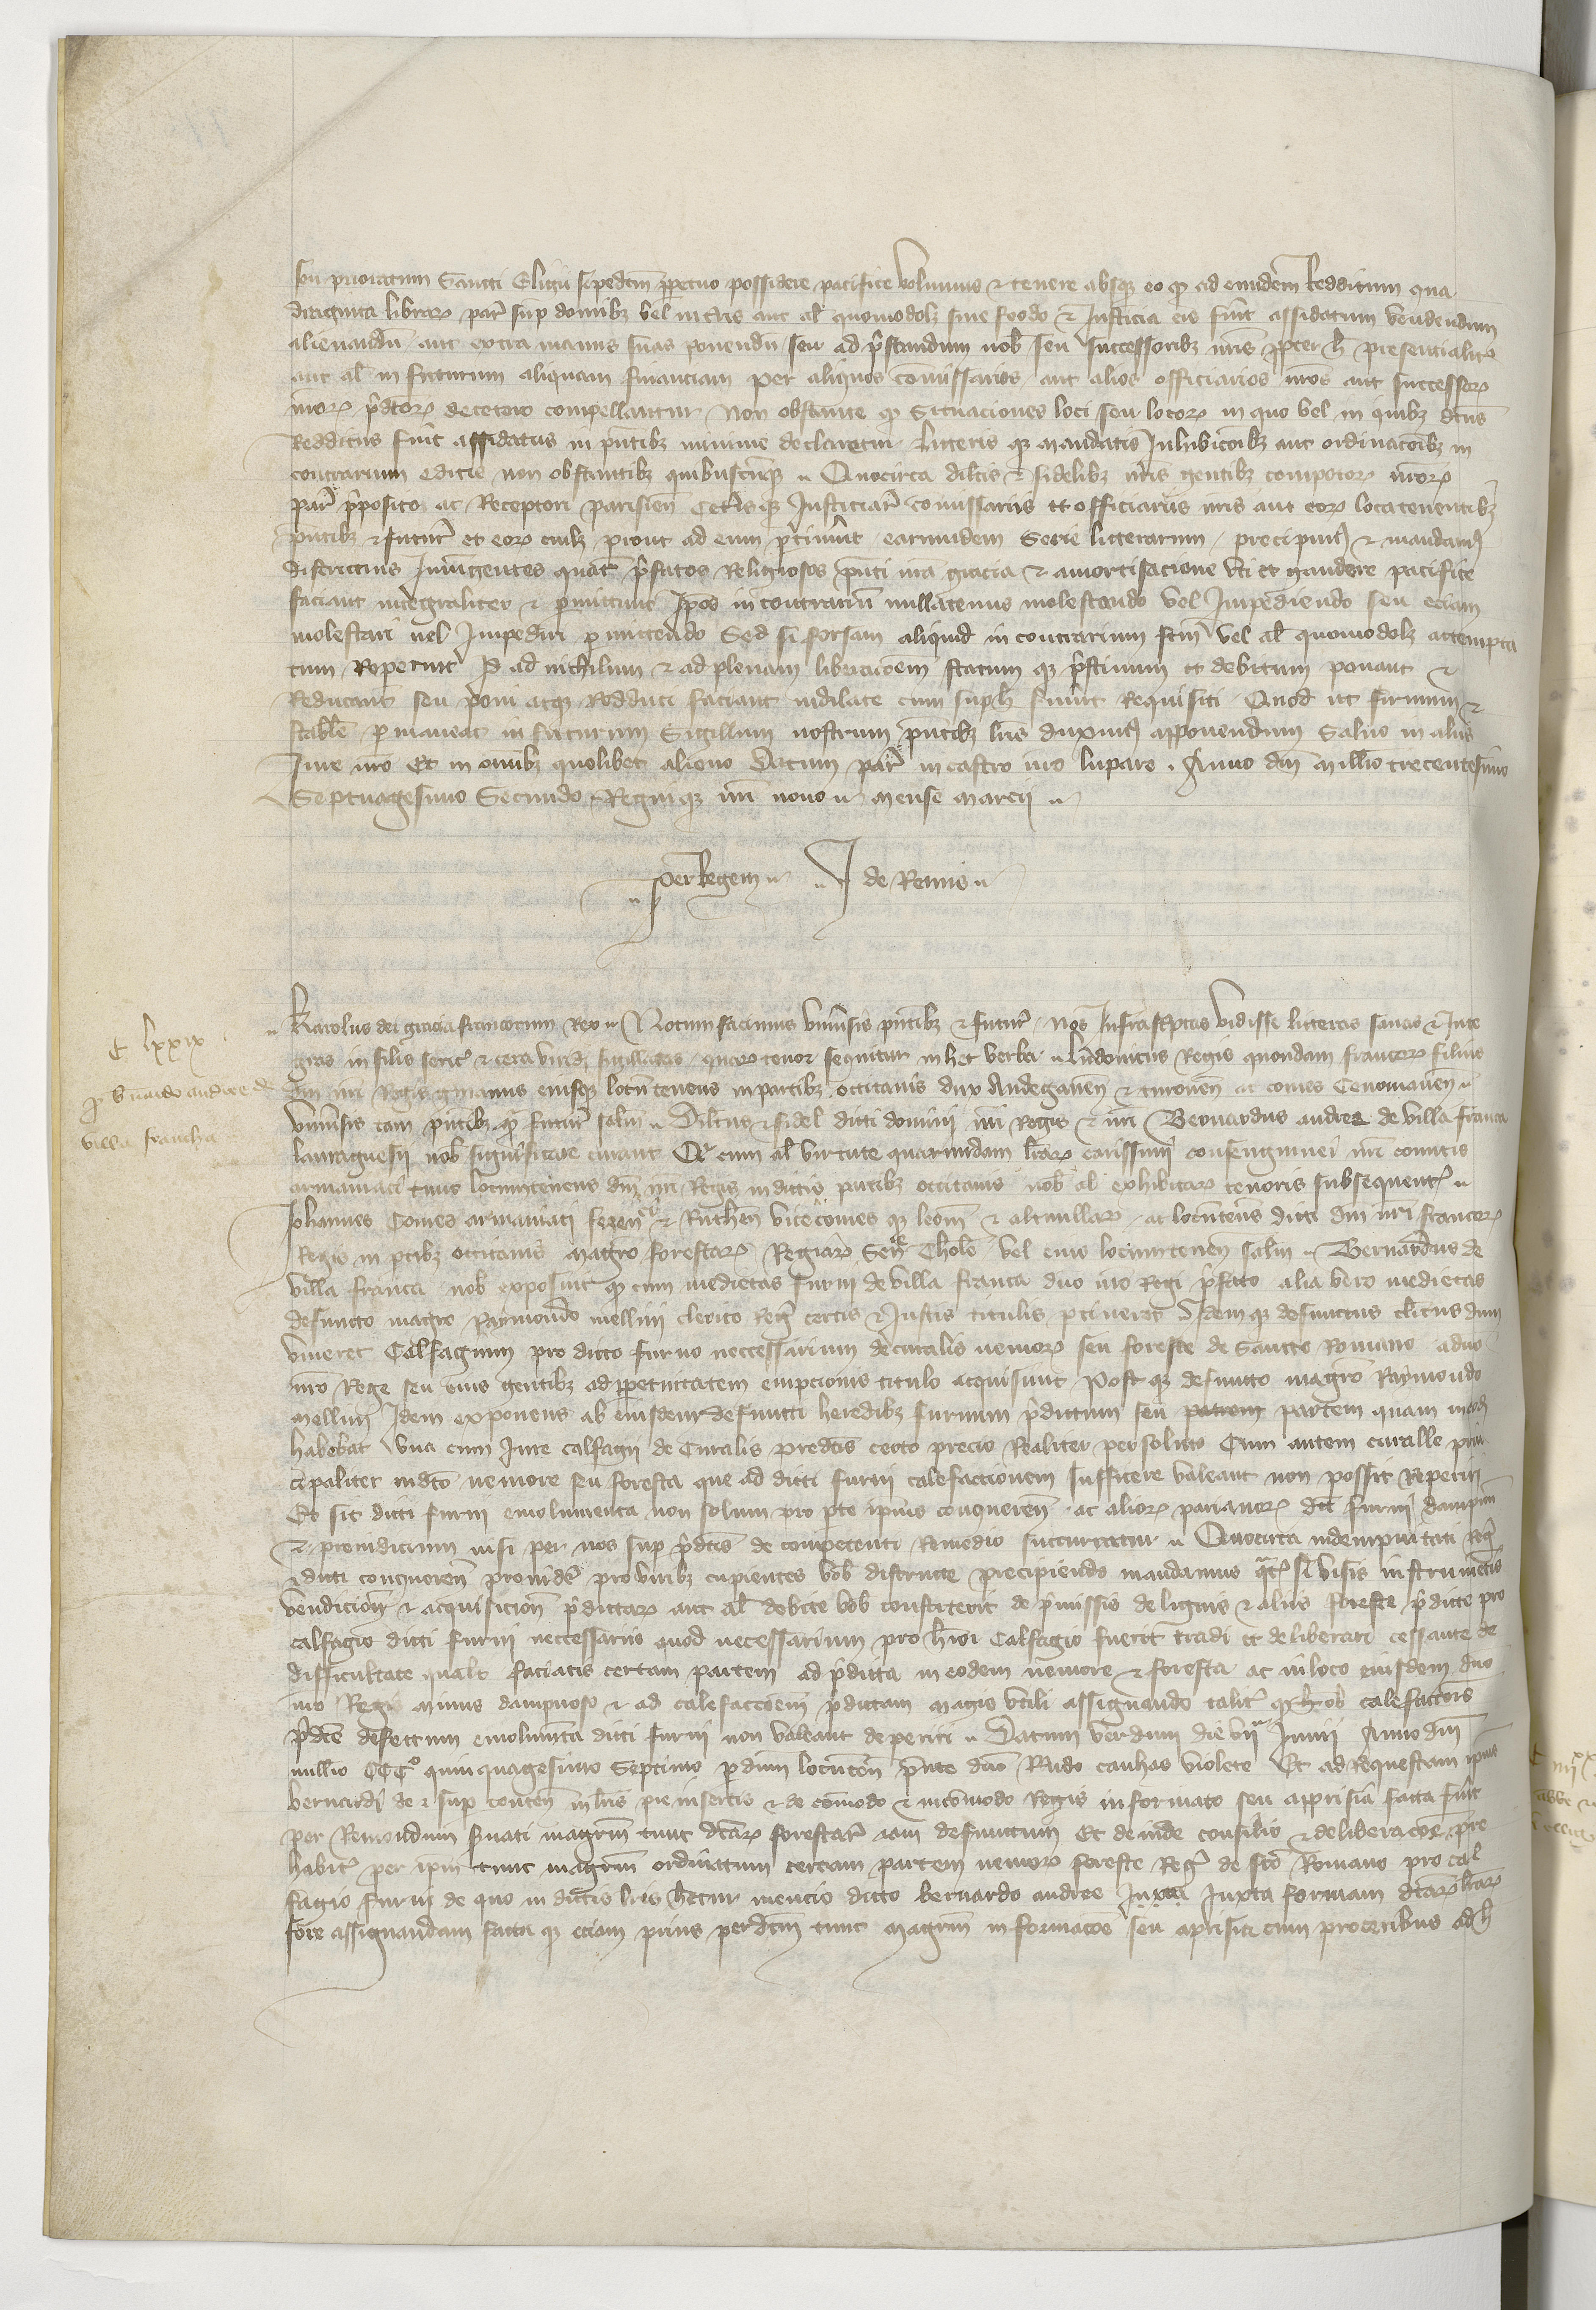 seu prioratum Sancti Eligii sepedcm ppetuo possidere pacifice volumus & tenere absqz eo qz ad eundem Redditum qua
draginta librarz par sup domibz vel in tris aut al quomodolz sine feodo & Justicia eis sunt assidatum vendendum
alienandu aut extra manus suas ponendu seu ad pstandum nob seu successoribz nris ppter h presentialit
aut al in futurum aliquam financiam per aliquos comissarios aut alios officiarios nros aut successorz
nrorz pdcorz decetero compellantur Non obstante qz Situaciones loci seu locorz in quo vel in quibz dcus
Redditus fuit assidatus in pntibz minime declaretur litteris qz mandatis Inhibicoibz aut ordinacoibz in
contrarium editis non obstantibz quibuscunqz Quocirca dilcis & fidelibz nris gentibz compotorz nrorz
par pposito ac Receptori parisien Cetisqz Justiciar comissariis et officiariis nris aut eorz locatenentibz
pntibz & futur et eorz cuilz prout ad eum ptinuit earumdem Serie litterarum precipim & mandam
districtius Iniungentes quat pfatos Religiosos pnti nra gracia & amortisacione uti et gaudere pacifice
faciant integraliter & pmittant Ipos in contrariu nullatenus molestando vel Impediendo seu eciam
molestari vel Impediri pmittendo Sed si forsam aliquid in contrarium fcm vel al quomodolz attempta
tum Reperint Id ad nichilum & ad plenam liberacoem statum qz pstinum et debitum ponant &
Reducant seu poni atqz Redduci faciant indilate cum suph fuint Requisiti Quod ut firmum &
stabile pmaneat in futurum Sigillum nostrum pntibz lris duxim apponendum Salvo in aliis
Jure nro Et in omibz quolibet alieno Datum par in castro nro lupare Anno dni millio trecentesimo
Septuagesimo Secundo Regni qz nri nono mense marcii
per Regem J de Remis
C lxxix
p bnardo andree de
villa francha
Karolus dei gracia francorum Rex Notum facimus univsis pntibz & futur Nos Infrascptas vidisse litteras sanas & Inte
gras in filis sericis & cera viridi sigillatas quarz tenor sequitur in hec verba ludovicus Regis quondam francorz filius
dni nri Regis gmanus eiusqz locutenens in partibz occitanis dux Andegaven & turonen ac comes Cenomanen
univsis tam pntibz qz futur salm Dilcus & fidel dicti domini nri Regis & nr Bernardus andree de villa franca
lauraguesii nob significare curavit Qz cum al virtute quarumdam lrarz carissimi consenguinei nri comitis
armaniaci tunc locumtenens dni nri Regis in dictis partibz occitanis nob al exhibitarz tenoris subsequent
Johannes Comes armaniaci fezen & Ruthen vicecomes qz leom & altmillarz ac locutenens dicti dni nri francorz
Regis in ptibz occitanis magro forestarz Regiarz Sen Thole vel eius locumtenen salm Bernardus de
villa franca nob exposuit qz cum medietas furni de villa franca dno nro Regi pfato alia vero medietas
defuncto magro Raymondo mellini clerico Reg certis & Justis titulis ptineret Idem qz defunctus clicus dum
viveret Calfagium pro dicto furno neccessarium de curalis nemorz seu foreste de Sancto Romano a dno
nro Rege seu eius gentibz ad ppetuitatem empcionis titulo acquisivit Post qz defuncto magro Raymondo
mellini Idem exponens ab eiusdem defuncti heredibz furnum pdictum seu patrem partem quam in eod
habebat una cum Jure calfagii de Curalis predcis certo precio Realiter persoluto Cum autem curalle prin
cipaliter indco nemore seu foresta que ad dicti furni calefactionem sufficere valeant non possit Reperiri
Et sic dicti furni emolumenta non solum pro pte ipius conqueren ac aliorz pariariorz dct furni dampnu
& preiudicium nisi per nos sup pdcis de competenti Remedio succurratur Quocirca indempnitati Reg
& dicti conqueren providi pro viribz cupientes vob districte precipiendo mandamus qtz si visis instrumetis
vendicion & acquisicion pdictarz aut al debite vob constiterit de pmissis de lignis & aliis foreste pdicte pro
calfagio dicti furni neccessariis quod necessarium pro hmoi Calfagio fuerit tradi et deliberari cessante de
difficultate qualt faciatis certam partem ad pdicta in eodem nemore & foresta ac in loco eiusdem dno
nro Regi minus dampnoso & ad calefaccoem pdictam magis utili assignando talit qz ob calefactois
pdce defectum emolumta dicti furni non valeant deperiri Datum verduni die vii Junii Anno dni
millio CCC quinquagesimo Septimo p dnm locuten pnte dno Rudo canhas violete Et ad Requestam ipius
bernardi de & sup conten in lris pre insertis & de comodo & incomodo Regis informato seu aprisia facta fuit
per Remondum fnati magrm tunc dcarz forestar iam defunctum Et deinde consilio & deliberacoe pre
habit per ipm tunc magrm ordinatum certam partem nemorz foreste Reg de sco Romano pro cal
fagio furni de quo in dictis lris hetur mencio dicto bernardo andree Juxta Juxta formam dcarz lrarz
fore assignandam facta qz eciam prius per dcm tunc magrm informacoe seu aprisia cum proceribus ad h